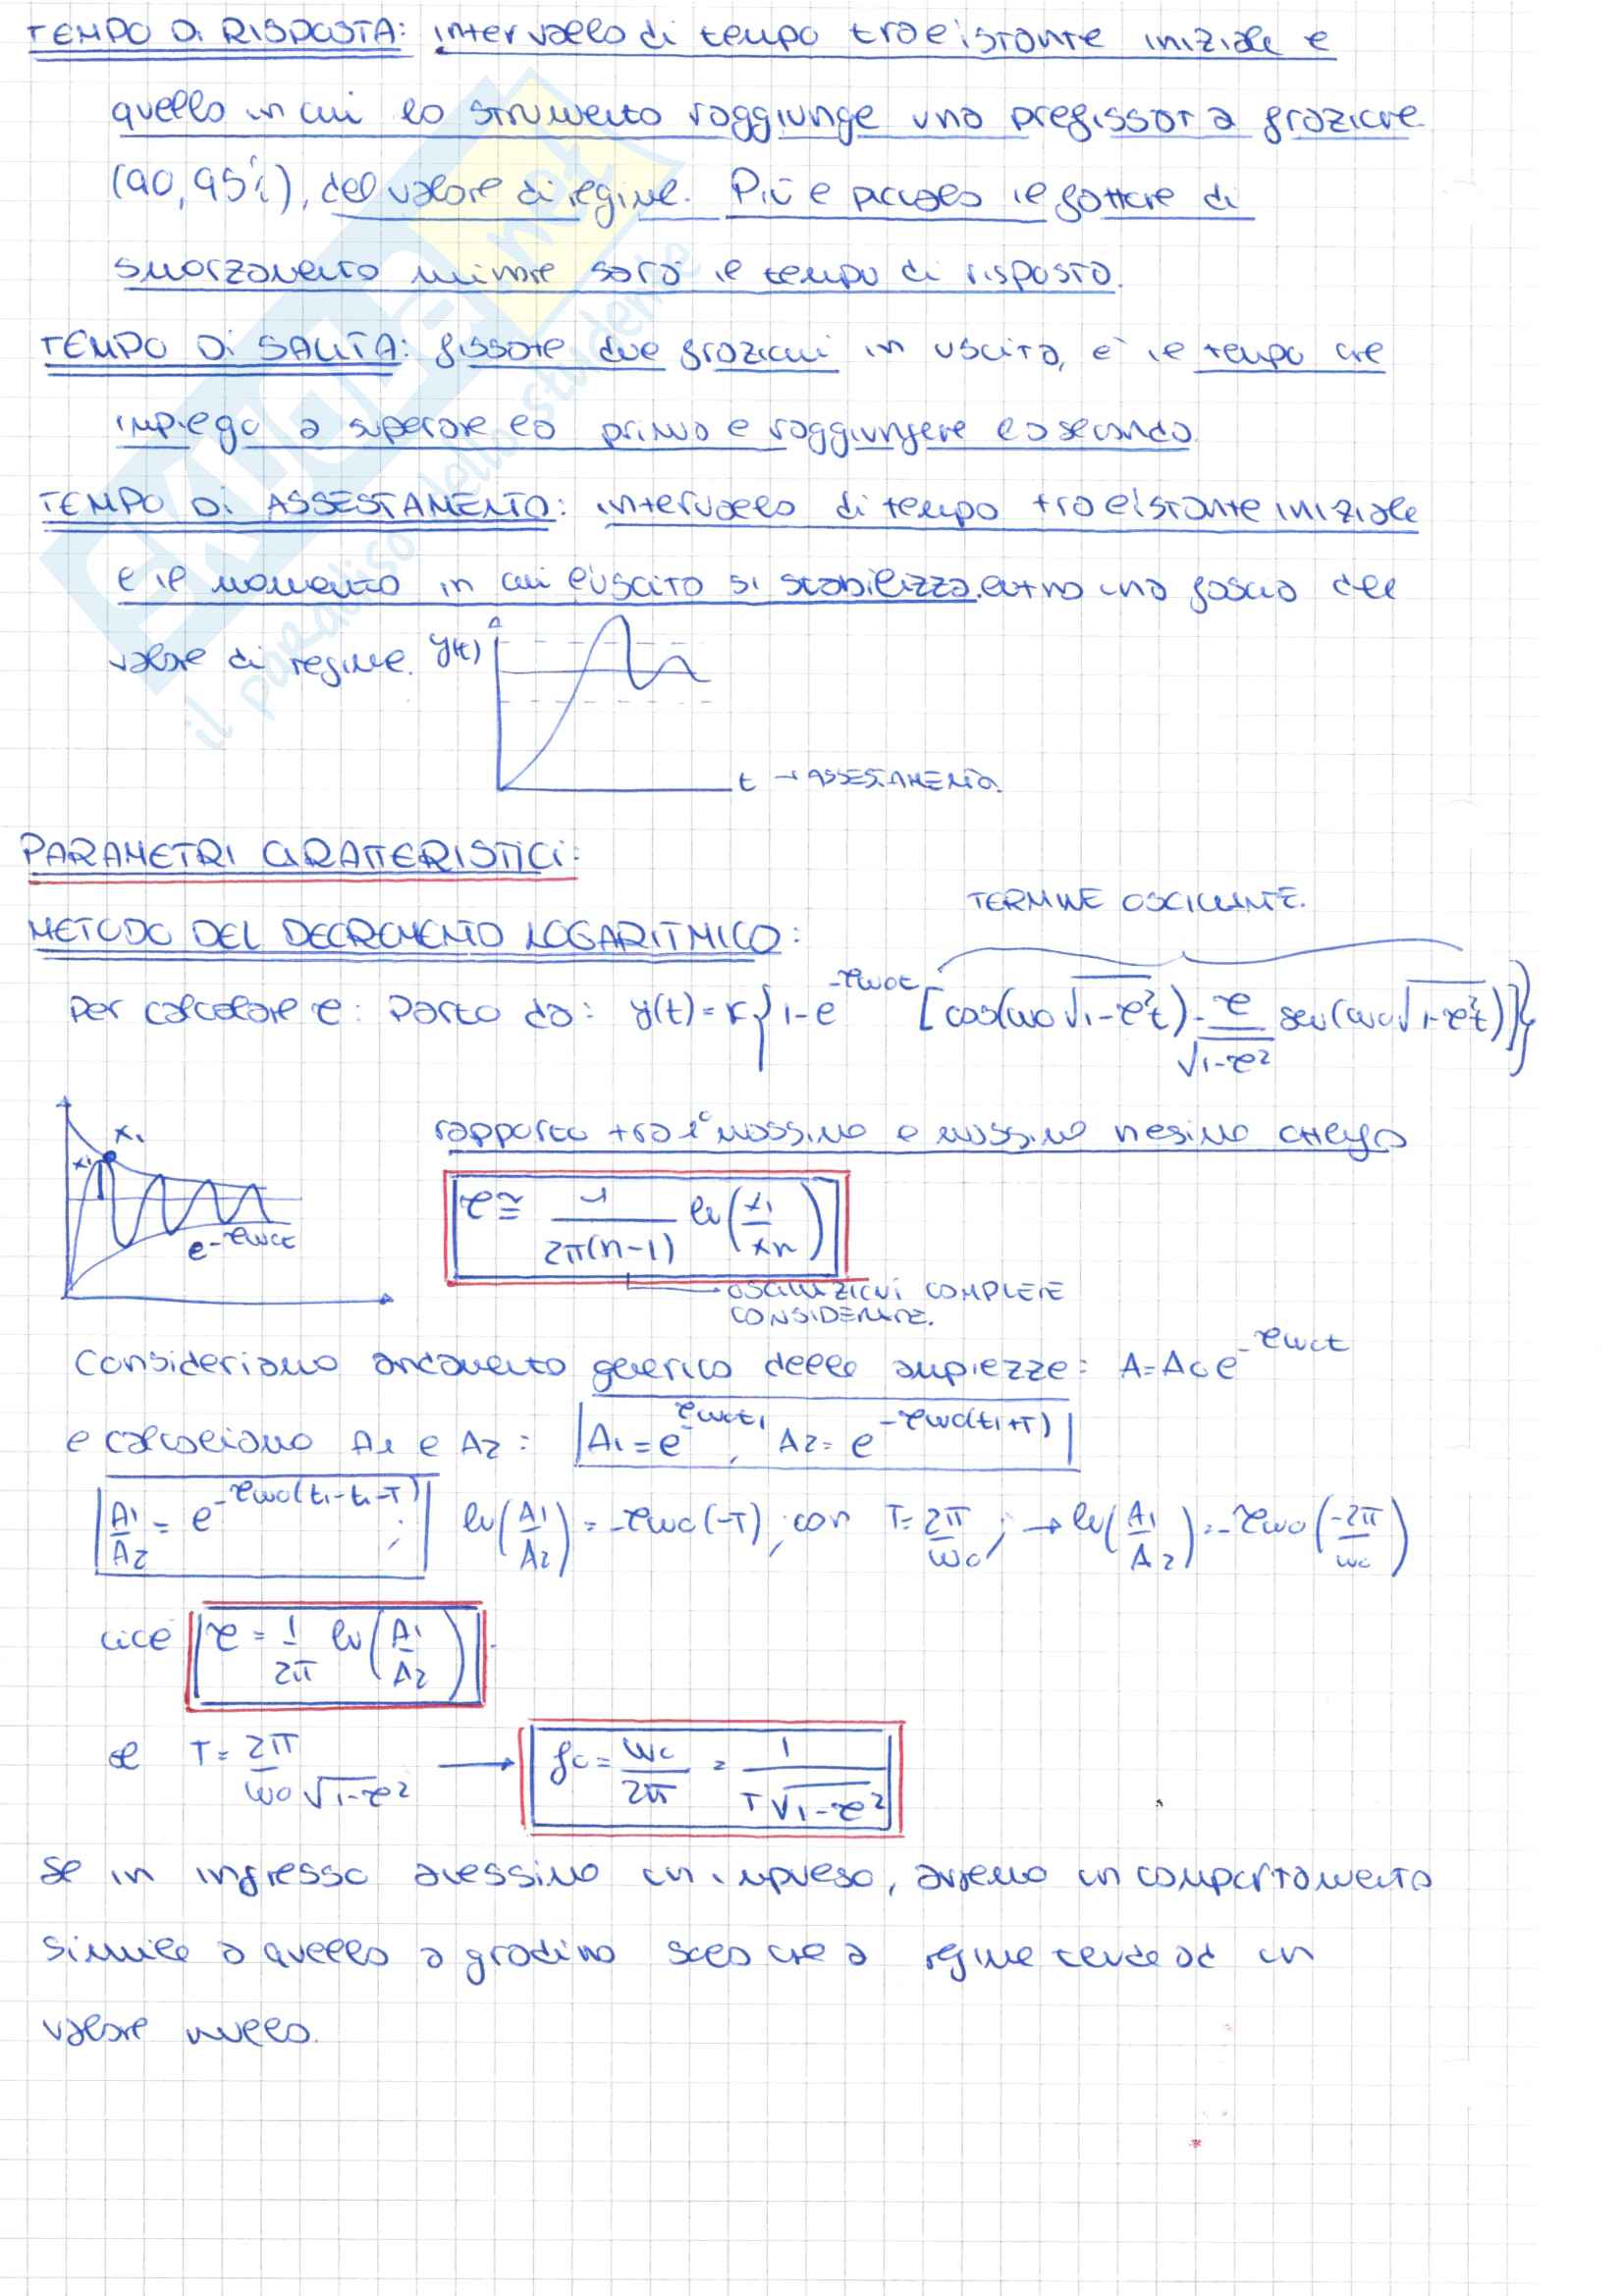 TEMPO DI RISPOSTA: intervallo di tempo tra l'istante iniziale e
quello in cui lo strumento raggiunge una prefissata frazione
(90,95%), del valore di regime. Più è piccolo il fattore di
smorzamento minore sarà il tempo di risposta.
TEMPO DI SALITA: fissate due frazioni in uscita, è il tempo che
impiega a superare la prima e raggiungere la seconda.
TEMPO DI ASSESTAMENTO: intervallo di tempo tra l'istante iniziale
e il momento in cui l'uscita si stabilizza entro una fascia del
valore di regime. y(t)
t → ASSESTAMENTO.
PARAMETRI CARATTERISTICI:
TERMINE OSCILLANTE.
METODO DEL DECREMENTO LOGARITMICO:
Per calcolare τ: Parto da: y(t)=K{1-e^-τω0t [cos(ω0√1-τ²t)-τ/√1-τ² sen(ω0√1-τ²t)]}
x1
x1
e^-τω0t
rapporto tra 1° massimo e massimo nesimo
τ ≅ 1/2π(n-1) ln(x1/xn)
OSCILLAZIONI COMPLETE
CONSIDERATE.
Consideriamo andamento generico delle ampiezze: A=A0e^-τω0t
e calcoliamo A1 e A2: A1=e^-τω0t1, A2=e^-τω0(t1+T)
A1/A2=e^-τω0(t1-t1-T); ln(A1/A2)=-τω0(-T), con T=2π/ω0; → ln(A1/A2)=-τω0(-2π/ω0)
cioè τ=1/2π ln(A1/A2).
se T=2π/ω0√1-τ² → f0=ω0/2π=1/T√1-τ²
Se in ingresso avessimo un impulso, avremo un comportamento
simile a quello a gradino solo che a regime tende ad un
valore nullo.
EXIUVA.net
il paradiso dello studente